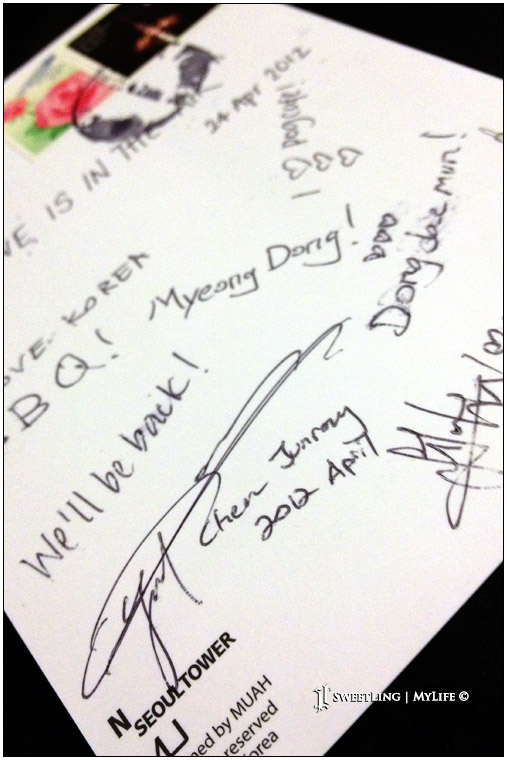 VE IS IN THE AIR
24 Apr 2012
I ♡♡♡ pageup!
OVE KOREA
BQ! Myeong Dong!
♡♡♡ Dong dae mun!
We'll be back!
Chen Junrong
2012 April
N
SEOULTOWER
ned by MUAH
reserved
orea
SWEETLING | MYLIFE ©